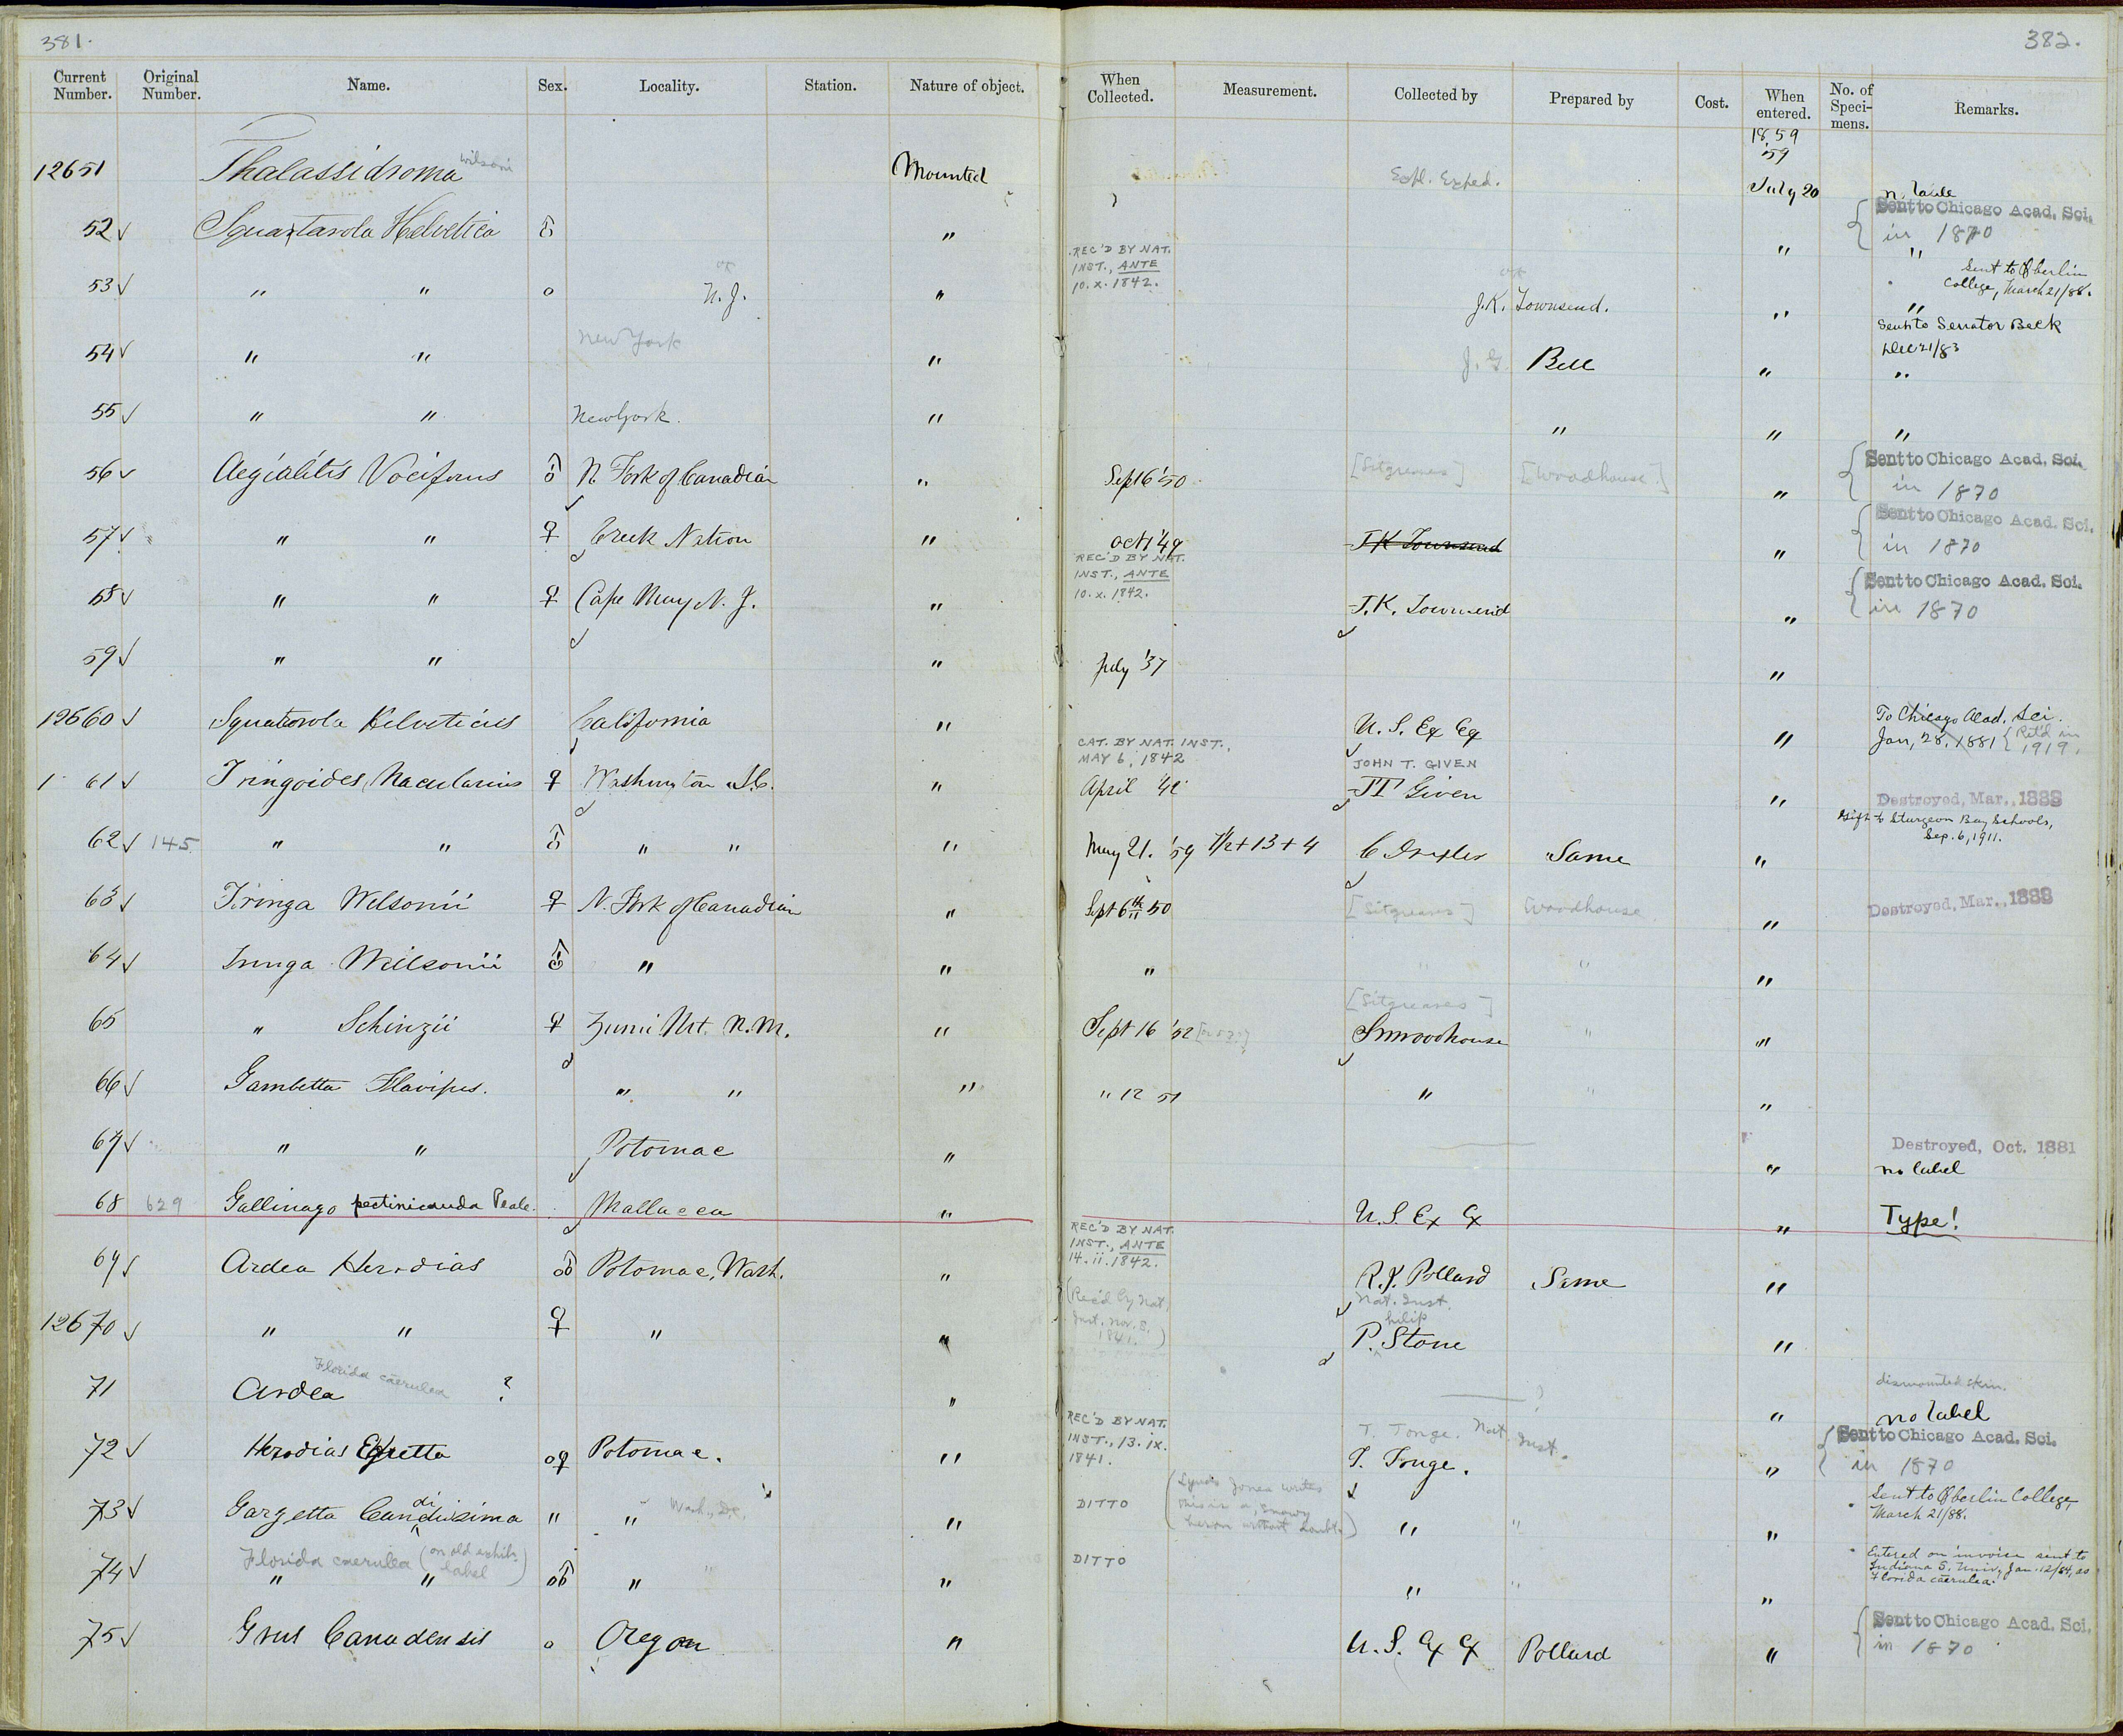 381.
382.
Current Number. Original Number. Name. Sex. Locality. Station. Nature of object. When Collected. Measurement. Collected by Prepared by Cost. When entered. No. of Speci-mens. Remarks.
1859
'59
12651 Thalassidroma wilsoni Mounted Expl. Exped. July 20 no lable
52 ✓ Squartarola Helvetica ♂ " " Sent to Chicago Acad. Sci. in 1870
"
REC'D BY NAT. INST., ANTE 10.x.1842.
53 ✓ " " o N.J. " J.K. Townsend. " Sent to Oberlin College, March 21/88.
"
54 ✓ " " New York " J. G Bell " Sent to Senator Beck Dec 21/83
"
55 ✓ " " New York. " " " "
56 ✓ Aegialitis Vociferus ♂ N. Fork of Canadian " Sep 16 '50 [Sitgreaves] [Woodhouse] " Sent to Chicago Acad. Sci. in 1870
57 ✓ " " ♀ Creek Nation " Oct 1 '49 J K Townsend " Sent to Chicago Acad. Sci. in 1870
58 ✓ " " ♀ Cape May N. J. " REC'D BY NAT. INST., ANTE 10.x.1842. J.K. Townsend " Sent to Chicago Acad. Sci. in 1870
59 ✓ " " " July '37 "
12660 ✓ Squatarola Helveticus California " U. S. Ex Ex " To Chicago Acad. Sci. Jan, 28, 1881 { Ret'd in 1919.
61 ✓ Tringoides Macularius ♀ Washington D.C. " CAT. BY NAT. INST., MAY 6, 1842 April '42 JOHN T. GIVEN JT Given " Destroyed, Mar., 1888
62 ✓ 145 " " ♂ " " " May 21. '59 7½ + 13 + 4 C Drexler Same " Gift to Sturgeon Bay Schools, Sep. 6, 1911.
63 ✓ Tringa Wilsonii ♀ N. Fork of Canadian " Sept 6th 50 [Sitgreaves] Woodhouse. " Destroyed, Mar., 1888
64 ✓ Tringa Wilsonii ♂ " " " " " "
65 " Schinzii ♀ Zuni Mt. N.M. " Sept 16 '52 [Sitgreaves] S W Woodhouse " "
66 ✓ Gambetta Flavipes. " " " " 12 51 " " "
67 ✓ " " Potomac " " Destroyed, Oct. 1881 no label
68 629 Gallinago pectinicauda Peale. Mallacca " U.S. Ex Ex " Type!
69 ✓ Ardea Herodias ♂ Potomac, Wash. " REC'D BY NAT. INST., ANTE 14.ii.1842. R.J. Pollard Same "
12670 ✓ " " ♀ " " (Rec'd by Nat. Inst. Nov. 8, 1841.) Nat. Inst. P.hilip Stone "
71 Ardea Florida caerulea ? " ? " dismounted skin. no label
72 ✓ Herodias Egretta o♀ Potomac. " REC'D BY NAT. INST., 13.ix. 1841. T. Tonge. Nat. Inst. T. Tonge. " Sent to Chicago Acad. Sci. in 1870
73 ✓ Garzetta Candidissima " " Wash., D.C. " DITTO (Lynds Jones writes this is a snowy heron without doubt.) " " " Sent to Oberlin College, March 21/88.
74 ✓ Florida caerulea (on old exhib. label) " " ♂ " " " DITTO " " " Entered on invoice sent to Indiana S. Univ., Jan. 12/84, as Florida caerulea.
75 ✓ Grus Canadensis o Oregon " U. S. Ex Ex Pollard " Sent to Chicago Acad. Sci. in 1870